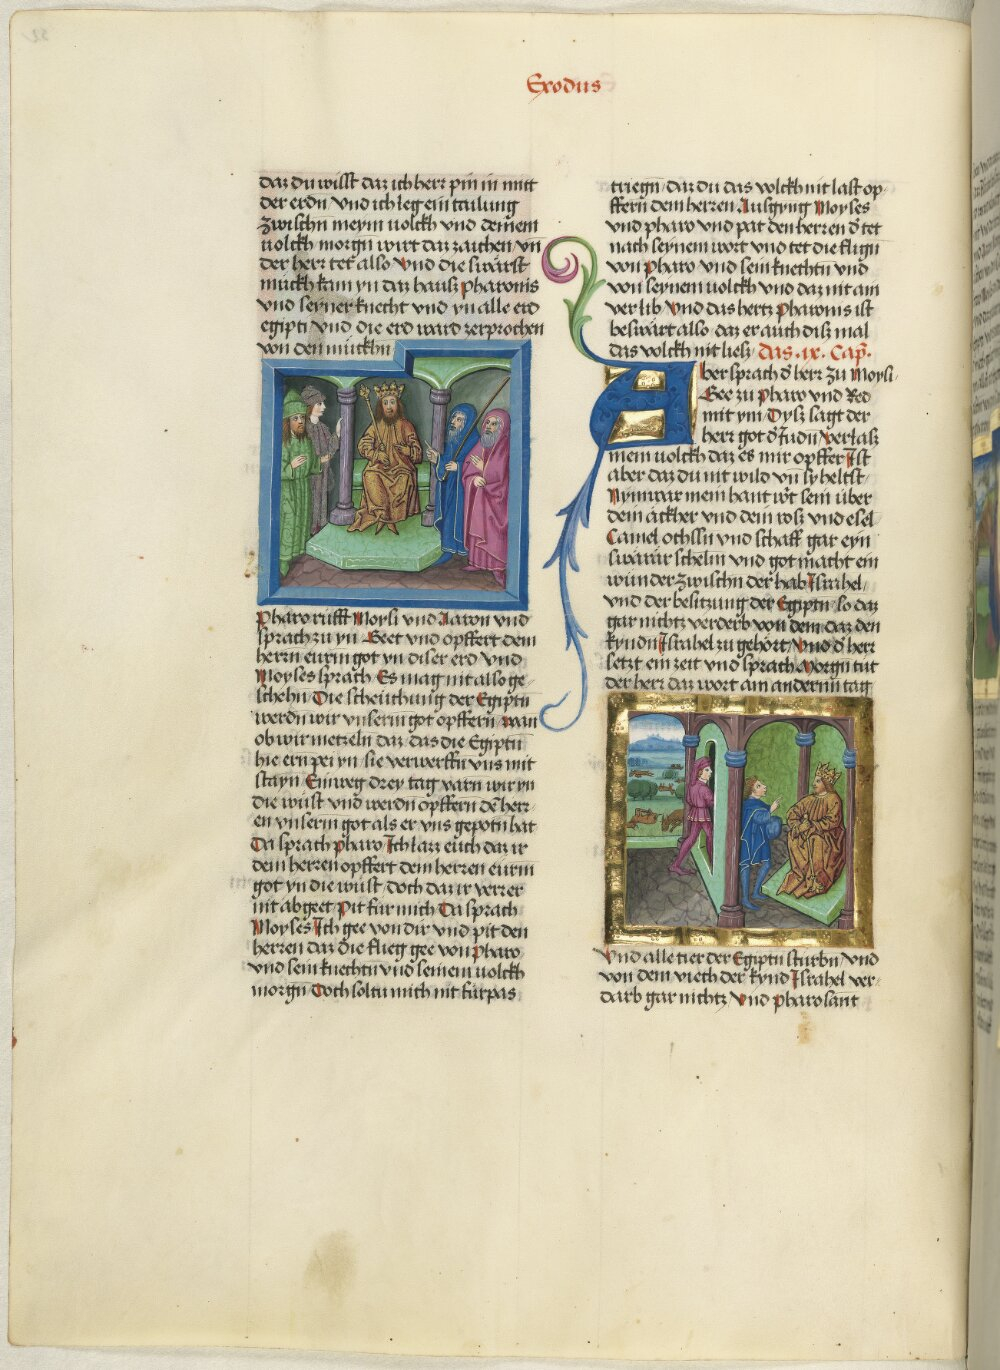 Exodus
daz du wisst daz ich herr pin in mitt
der erdn vnd ich leg ein tailung
zwischn meym uolckh vnd deinem
uolckh morgn wirt daz zaichen vn
der herr tet also Vnd die swärst
mückh kam yn daz hausz pharonis
vnd seyner knecht vnd yn alle erd
egipti vnd die erd ward zerprochen
von den mückhn
Pharo rüfft Moysi vnd Aaron vnd
sprach zu yn Geet vnd opffert dem
herrn eurm got yn diser erd vnd
Moyses sprach Es mag nit also ge
schehn Die scheuchung der Egiptn
werdn wir vnserm got opffern wan
ob wir metzeln daz das die Egiptn
hie ern pei yn sie verwerffn vns mit
stayn Einweg drey tag varn wir yn
die wüst vnd werdn opffern dē herr
en vnserm got als er vns gepotn hat
Da sprach pharo Ich lazz euch daz ir
dem herren opffert dem herren eurm
got yn die wüst doch daz ir verrer
nit abgeet Pit für mich Da sprach
Moyses Ich gee von dir vnd pit den
herren daz die flieg gee von Pharo
vnd sein knechtn vnd seinem uolckh
morgn Doch soltu mich nit fürpas
triegn daz du das volckh nit last op
ffern dem herren Ausgyng Moyses
vnd pharo vnd pat den herren d̄ tet
nach seynem wort vnd tet die flign
von Pharo vnd sein knechtn vnd
von seynem uolckh vnd daz nit ain
verlib Vnd das hertz Pharonis ist
beswärt also daz er auch disz mal
das volckh nit liesz Das .ix. Cap̄.
Aber sprach d̄ herr zu Moysi
Gee zu Pharo vnd Red
mit ym Dysz sagt der
herr got d̄ Judn Verlasz
mein uolckh daz es mir opffer Ist
aber daz du nit wild vn̄ sy heltst
Nym war mein hant w̄t sein über
dem äckher vnd dein rosz vnd esel
Camel ochssn vnd schaff gar eyn
swärar schelm vnd got macht ein
wunder zwischn der hab Israhel
vnd der besitzung der Egiptn so daz
gar nichtz verderb von dem daz den
kyndn Israhel zu gehört Vnd d̄ herr
setzt ein zeit vnd sprach Morgn tut
der herr daz wort am andernn tag
Vnd alle tier der Egiptn sturbn vnd
von dem viech der kynd Israhel ver
darb gar nichtz Vnd pharo sant